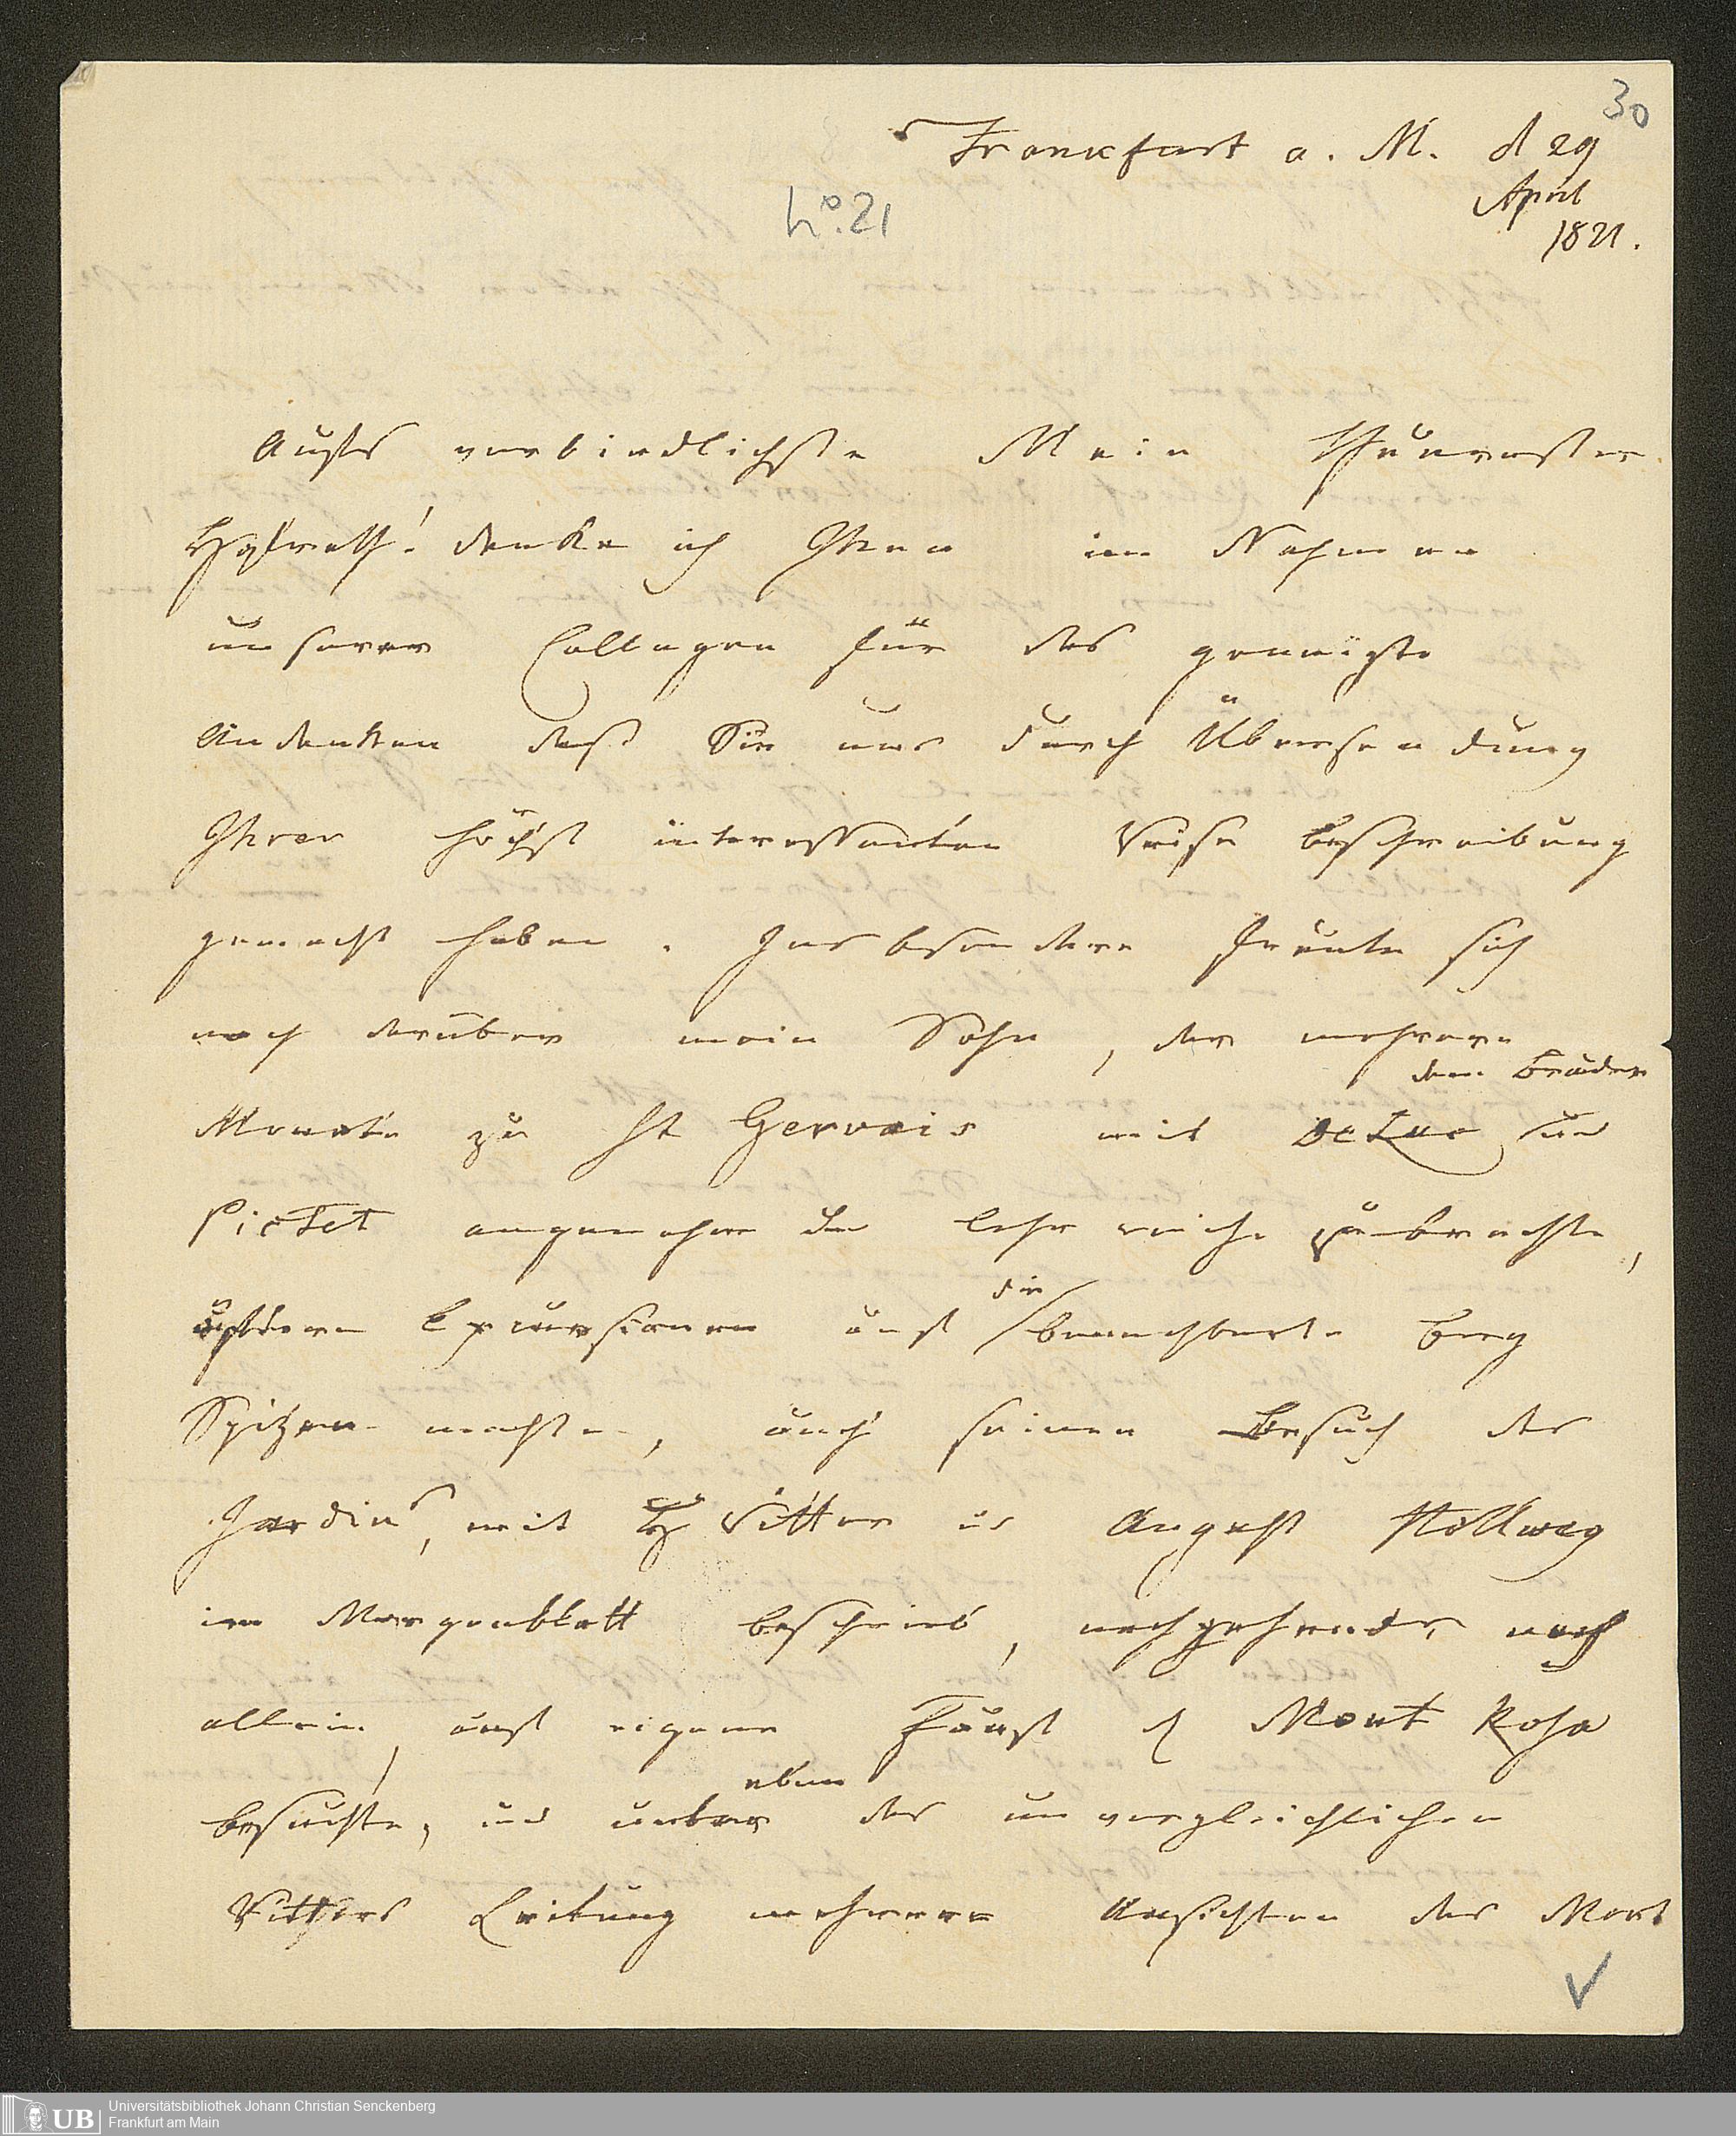 30
Frankfurt a. M. d 29
April
1821.
No. 21
Aufs verbindlichste Mein Theuerster
Hofrath! danke ich Ihnen im Nahmen
unserer Collegen für das geneigte
Andenken daß Sie uns durch Übersendung
Ihrer höchst interessanten Reise beschreibung
gemacht haben. Ins besondere freute sich
noch darüber mein Sohn, der mehrere
dem Bruder
Monate zu St Gervais mit De Luc und
Pictet angenehm u lehrreich zubrachte,
öftere Excursionen auf die benachbarte Berg
Spitzen machte, auch seinen Besuch des
Jardin, mit H Ritter u August Hollweg
im Morgenblatt beschrieb, nachgehends noch
allein, auf eigene Faust d Mont Rosa
besuchte, und unter eben des unvergleichlichen
Ritters Leitung mehrere Ansichten des Mont
UB
Universitätsbibliothek Johann Christian Senckenberg
Frankfurt am Main